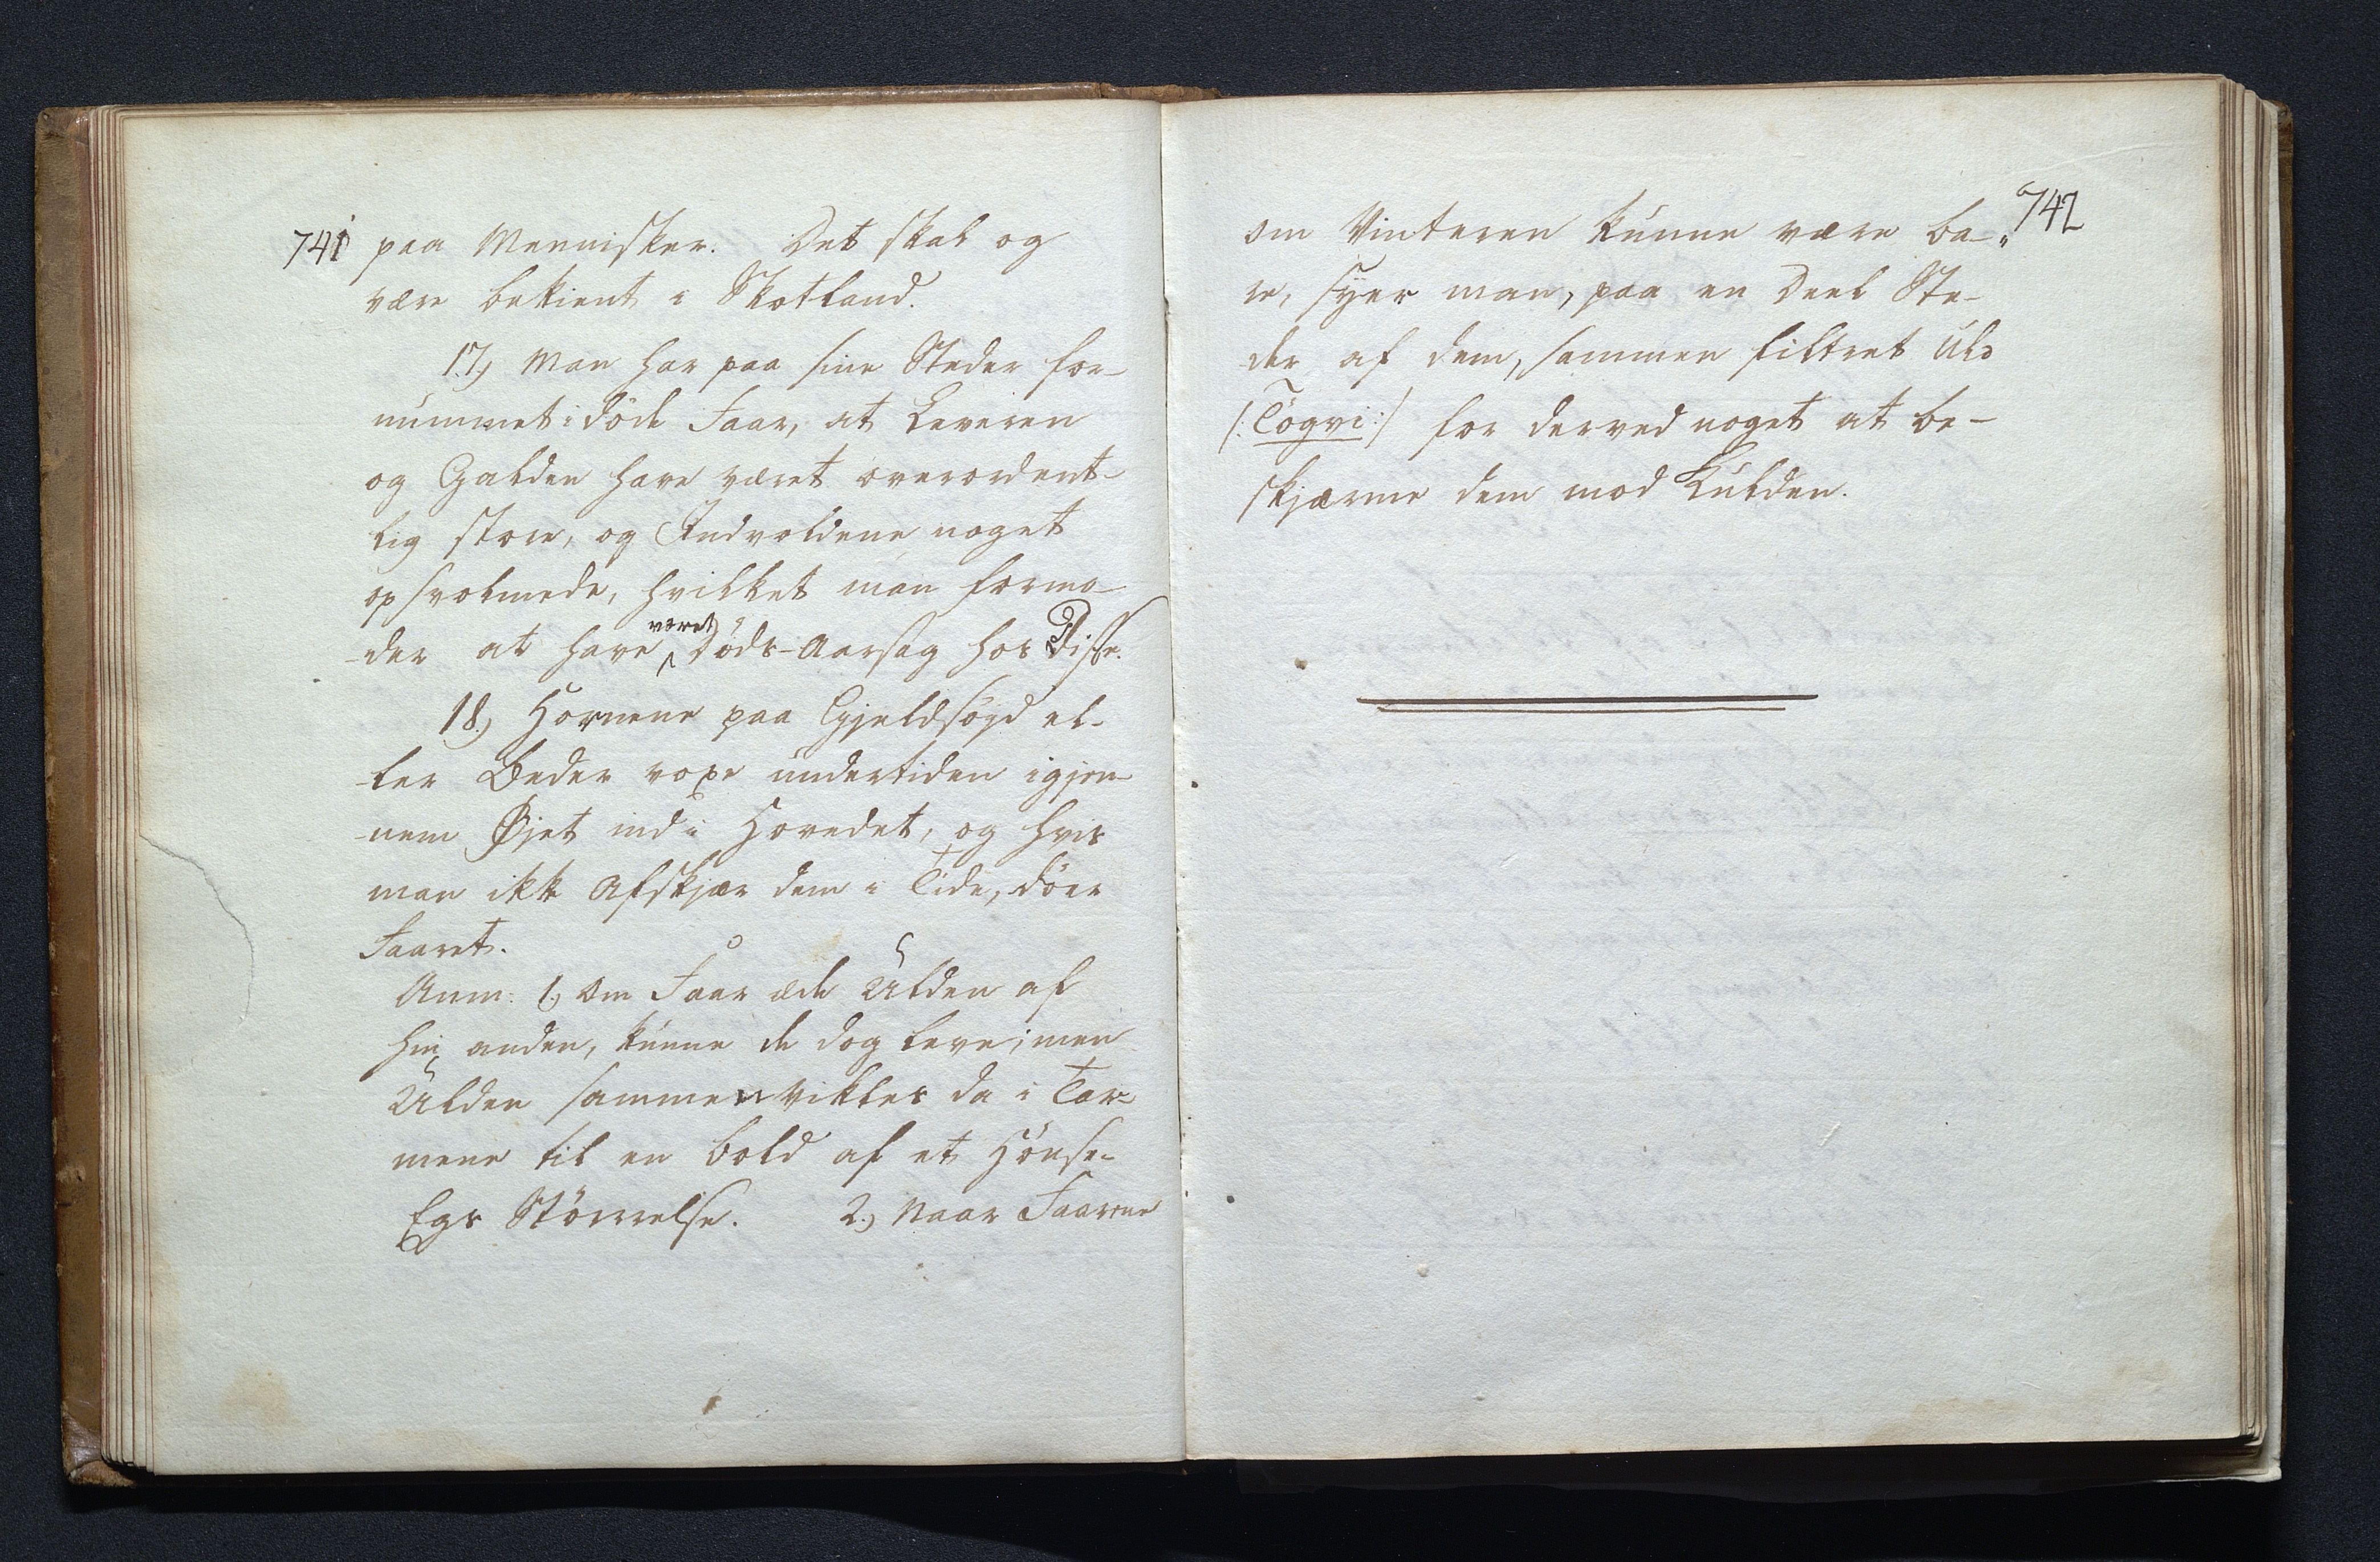 741
paa Mennisker. Det skal og
være bekient i Skotland.
17.) Man har paa sine Steder for-
nummet i döde Faar, at Leveren
og Galden have været overordent-
lig store, og Indvoldene noget
opsvolmede, hvilket man formo-
der at have været Döds-Aarsag hos Disse.
18.) Hornene paa Gjeldsöyd el-
ler Beder voxe undertiden igjen-
nem Øjet ind i Hovedet, og hvis
man ikke Afskjær dem i Tide, döer
Faaret.
Anm: 1.) Om Faar æde Ulden af
hin anden, kunne de dog leve; men
Ulden sammenvikles da i Tar-
mene til en bold af et Hönse-
Egs Störrelse. 2.) Naar Faarene
742
om Vinteren kunne være ba-
re, syer man, paa en Deel Ste-
der af dem, sammen filtret Uld
(:Tögvi:) for derved noget at be-
skjærme dem mod Kulden.